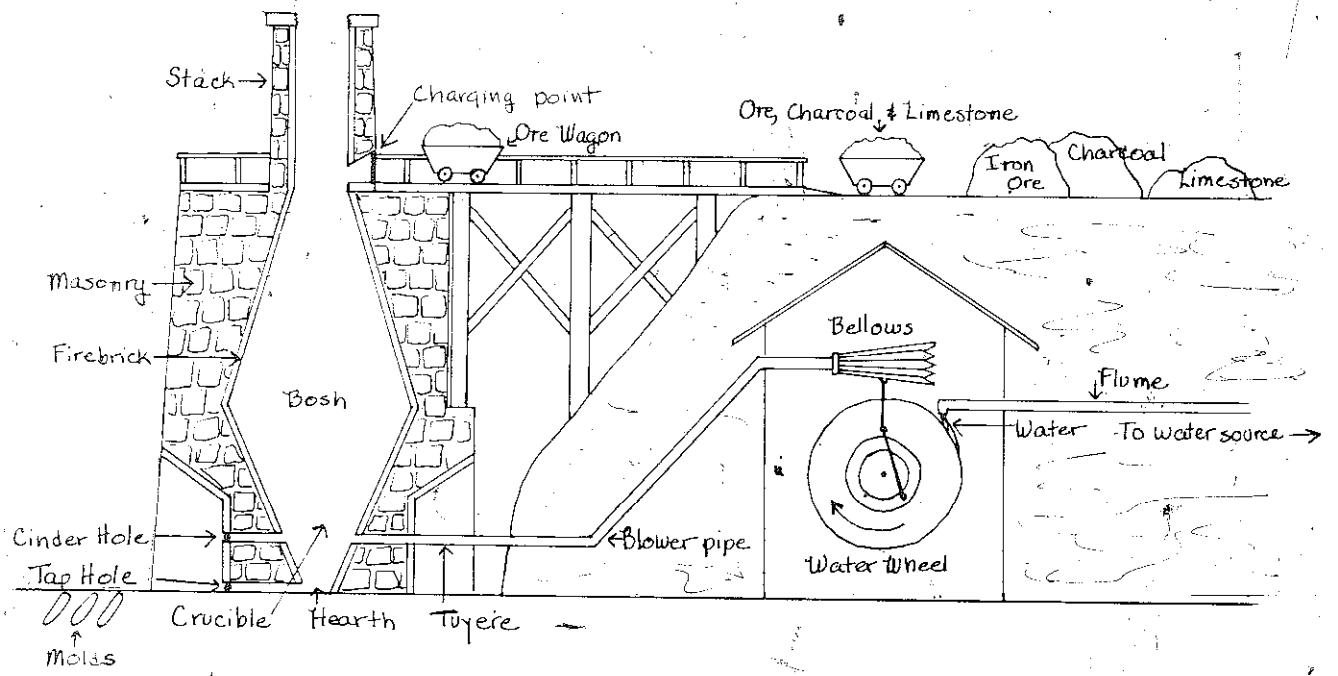 Stack
Charging point
Ore Wagon
Ore, Charcoal, & Limestone
Iron
Ore
Charcoal
Limestone
Masonry
Firebrick
Bosh
Bellows
Flume
Water
To water source
Cinder Hole
Blower pipe
Tap Hole
Water Wheel
Crucible
Hearth
Tuyere
Molds